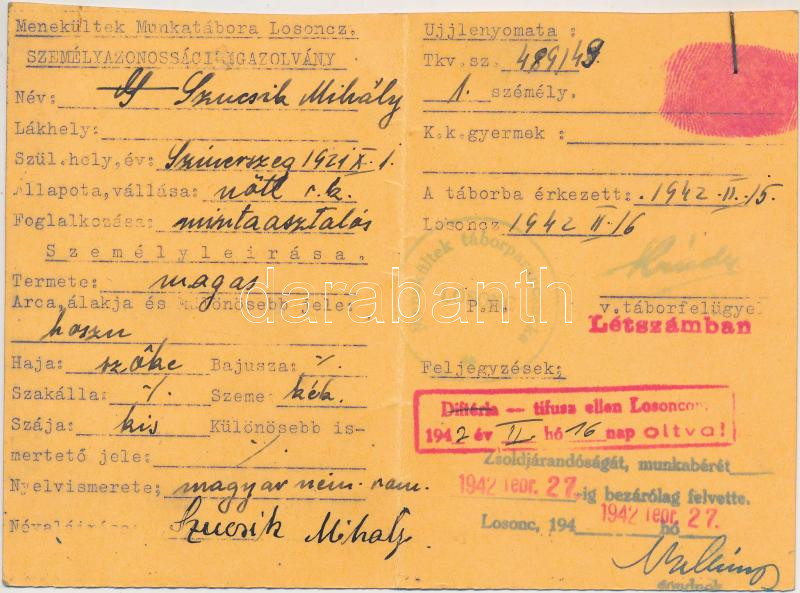 Menekültek Munkatábora Losoncz.
SZEMÉLYAZONOSSÁCI IGAZOLVÁNY
Név: Szucsik Mihály
Lákhely:
Szül.hely,év: Szinerszeg 1921 X. 1.
Állapota,vállása: nőtl r.k.
Foglalkozása: mintaasztalós
Személyleirása.
Termete: magas
Arca,álakja és különösebb jele:
hoszu
Haja: szőke Bajusza: /.
Szakálla: /. Szeme: kék.
Szája: kis Különösebb is-
mertető jele: /.
Nyelvismerete; magyar ném. rom.
Névaláirása: Szucsik Mihaly
Ujjlenyomata :
Tkv.sz. 489/43
1. személy.
K.k.gyermek :
A táborba érkezett: 1942.II./5.
Losoncz 1942 II/6
P.H. v.táborfelügye
Létszámban
Feljegyzések;
Diftéria — tifusz ellen Losoncon
1942 év II. hó 16 nap oltva!
Zsoldjárandóságát, munkabérét
1942 febr. 27.-ig bezárólag felvette.
Losonc, 194 1942 febr. 27. hó
gondnok
darabanth